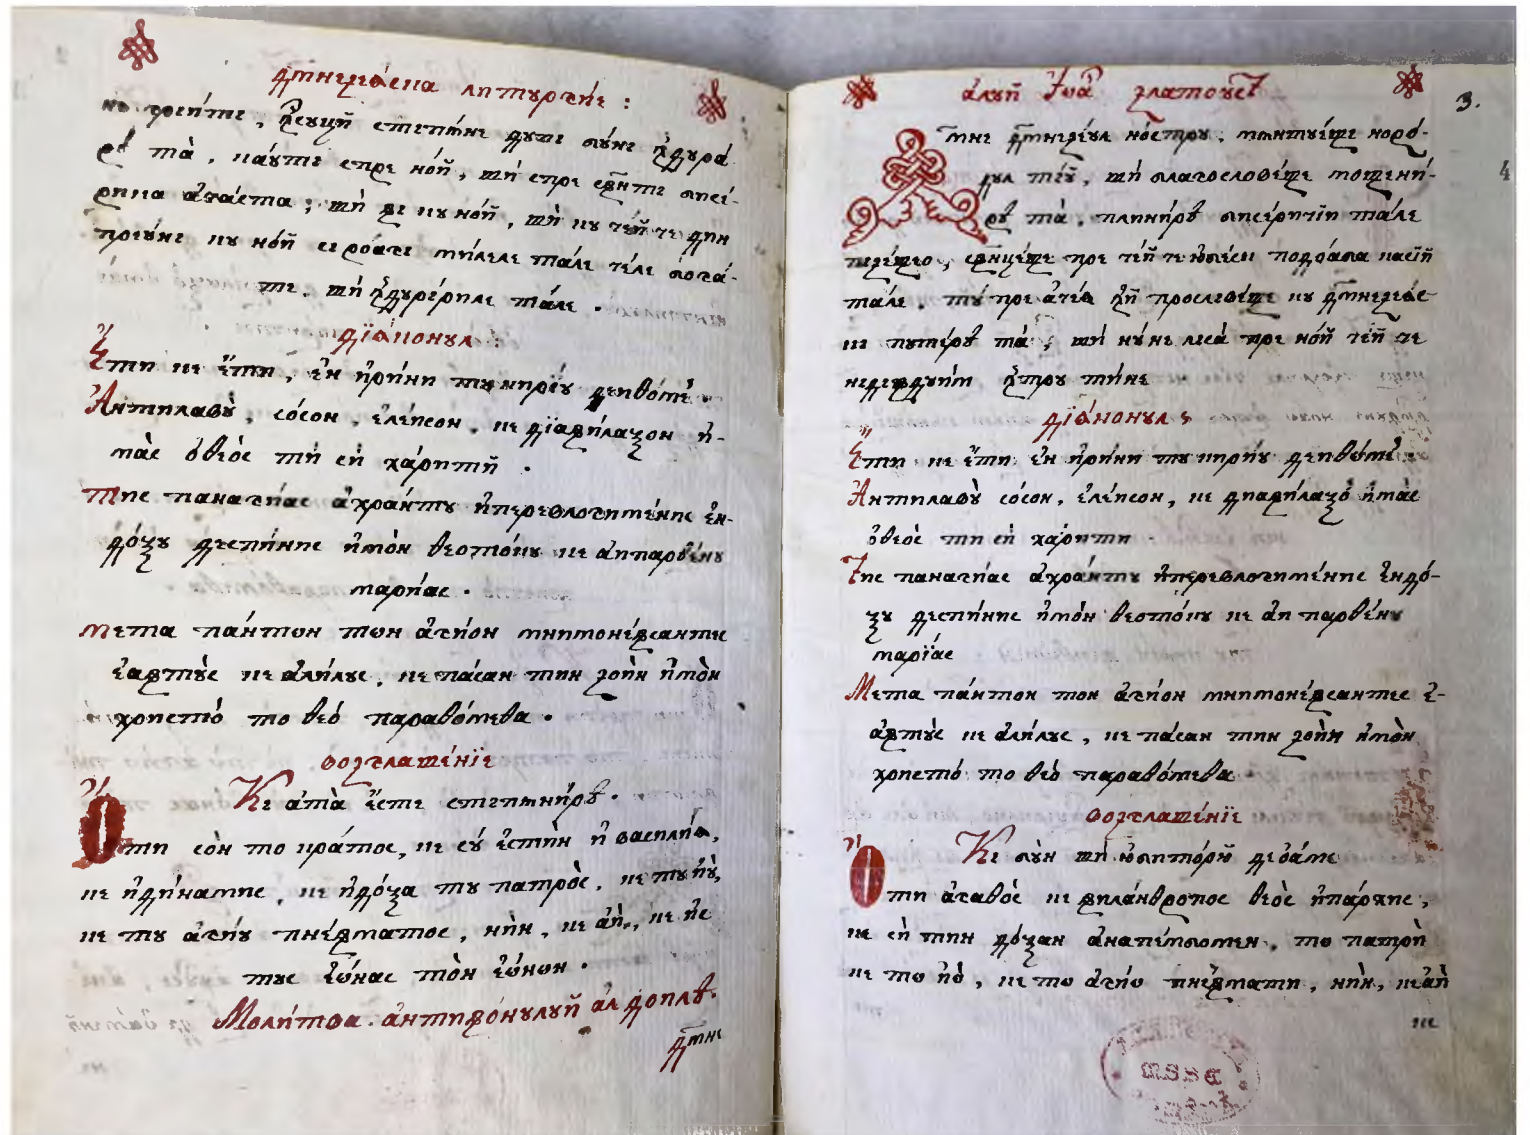 дꙋмнеꙁеѧска литꙋргїе :
не грѣ́ите , і҆сꙋши стъпѫ́не дꙋпе мꙋ́не ꙟдꙋра́
рѣ та̀ , ка́ꙋтъ спре но́й , ши спре
рика ача́ста ; ши фъ кꙋ но́й , шѝ кꙋ че́й че
кꙋ но́й се роа́гъ ми́леле та́ле че́ле бога́-
те , ши ꙟдꙋрѣ́риле та́ле .
дїа́конꙋл :
Є҆́ти кє є҆́ти , є҆н и҆ри́ни тꙋ кирі́ꙋ деиѳо́мє
А҆нтилавꙋ̀ , со́сон , є҆ле́исон , кє дїафи́лаѯон и҆-
ма̀с ѻ҆ ѳео̀с ти си ха́рити .
тис панагі́ас а҆хра́нтꙋ и҆перевлогимє́нис є҆н-
до́ѯꙋ деспи́нис и҆мо̀н ѳеото́кꙋ кє а҆ипарѳє́нꙋ
марі́ас .
мета па́нтѡн тѡн а҆гі́ѡн мнимонє́фсантес
є҆афтꙋ̀с кє а҆ли́лꙋс , кє па́сан тин зои̏н и҆мо̀н
христо́ то ѳео́ параѳо́меѳа .
возглашє́нїе
Къ а҆та̀ є҆́сте стъпѫни́рѣ .
О҆́ти со̀н то кра́тос , кє сꙋ́ є҆сти̏н и҆ васили́а ,
кє и҆ ди́намис , кє и҆ до́ѯа тꙋ патро̀с , кє тꙋ и҆ꙋ̀ ,
кє тꙋ а҆гі́ꙋ пнє́фматос , ни̏н , кє а҆ѝ , кє и҆с
тꙋс є҆ѡ́нас тѡ̀н є҆ѡ́нѡн .
Моли́тва а҆нтифо́нꙋлꙋй ал до́илѣ .
дмне
а҆лꙋй і҆ѡа́н златоꙋст
3.
4
мне дмнеꙁеꙋл но́стрꙋ , мѫнтꙋе́ще норо́-
дꙋл тъ́ꙋ , ши благослове́ще мощени́-
рѣ та̀ , плини́рѣ бисе́ричїй та́ле
пъзе́ще ; сфинце́ще пре че́й че юбе́ск подоа́ба касїй
та́ле , тꙋ́ пре ачѣ́ѧ ꙟй прославе́ще кꙋ дмнеꙁеѧ́с-
ка пꙋтѣ́рѣ та̀ ; ши нꙋ́ не лъса̀ пре но́й че́й че
нъдеждꙋи́м ꙟтрꙋ ти́не
дїа́конꙋл :
Є҆́ти кє є҆́ти є҆н и҆ри́ни тꙋ кири́ꙋ деиѳѡ́мє
А҆нтилавꙋ̀ со́сон , є҆ле́исон , кє диафи́лаѯо и҆ма̀с
ѻ҆ѳео̀с ти си ха́рити .
Тис панагі́ас а҆хра́нтꙋ и҆перевлогимє́нис є҆ндо́-
ѯꙋ деспи́нис и҆мо̀н ѳеото́кꙋ кє а҆и парѳє́нꙋ
марі́ас
Мета па́нтон тон а҆гі́он мнимонє́фсантес є҆-
афтꙋ̀с кє а҆ли́лꙋс , кє па́сан тин зои̏н и҆мо̀н
христо́ то ѳео́ параѳо́меѳа
возглашє́нїе
Къ бꙋ̀н ши юбито́рю де ѡа́мени
О҆́ти а҆гаѳо̀с кє фила́нѳропос ѳео̀с и҆па́рхис ,
кє си тин до́ѯан а҆напє́мпомен , тѡ патрѝ
кє тѡ и҆ѻ̀ , кє тѡ а҆гі́ѡ пнє́фмати , ни̏н , кє а҆ѝ
кє
MSSE